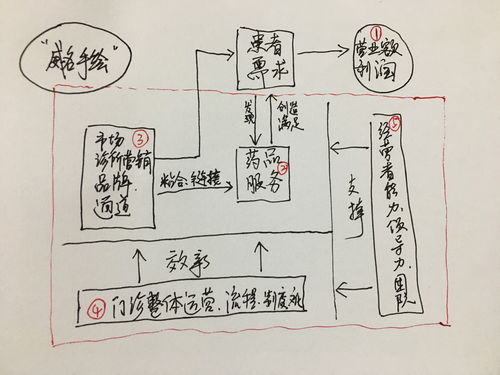 "威名手绘"
患者
需求
①
营业额
利润
发现
创造
满足
市场 ③
诊所营销
品牌
渠道
粘合.链接
药品
服务 ②
支撑
⑤
经营者能力.领导力.团队
效率
④ 门诊整体运营.流程.制度